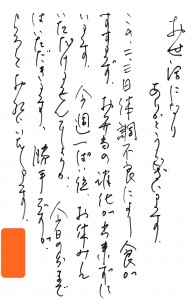 お世話になり
ありがとうございます。
この二、三日体調不良により食が
すすまず、お弁当の消化が出来ずに
います。今週一ぱい位、お休みに
いただけませんでしょうか。今日の分まで
はいただきます。勝手ですが、
よろしくお願いいたします。